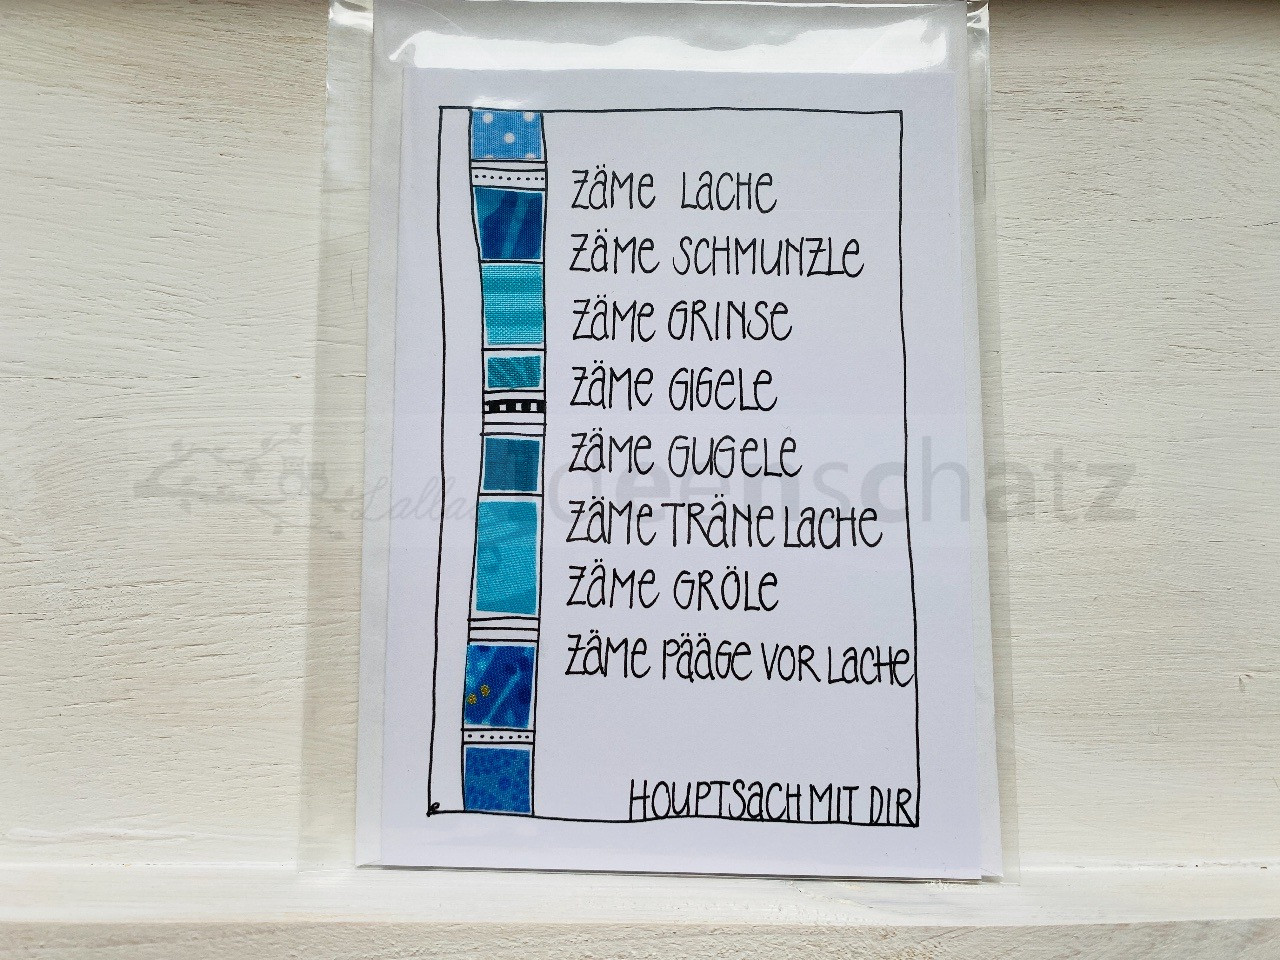 ZÄME LACHE
ZÄME SCHMUNZLE
ZÄME GRINSE
ZÄME GIGELE
ZÄME GUGELE
ZÄME TRÄNE LACHE
ZÄME GRÖLE
ZÄME PÄÄGE VOR LACHE
HOUPTSACH MIT DIR
Lallas Ideenschatz